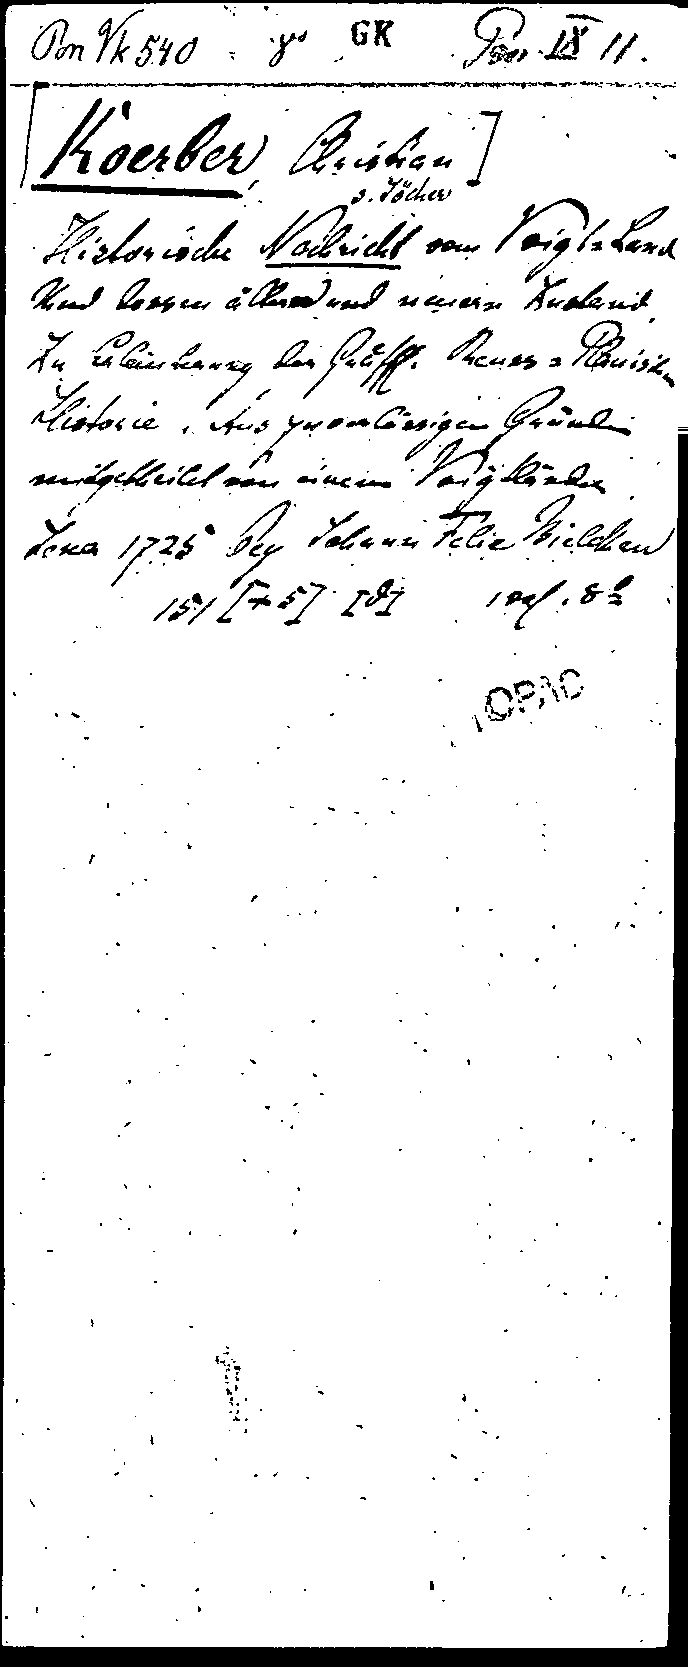 Pon Vk 540 GK Pon IX 11.
[Koerber, Christian]
s. Jöcher
Historische Nachricht vom Voigts-Land
Und dessen ältern und neuern Zustand,
Zu Erläuterung der Gräffl. Reuss-Plauischen
Historie. Aus zuverlässigen Gründen
mitgetheilet von einem Voigtländer
Jena 1725 Bey Johann Felix Bielcken
151 [+5] 8°
OPAC